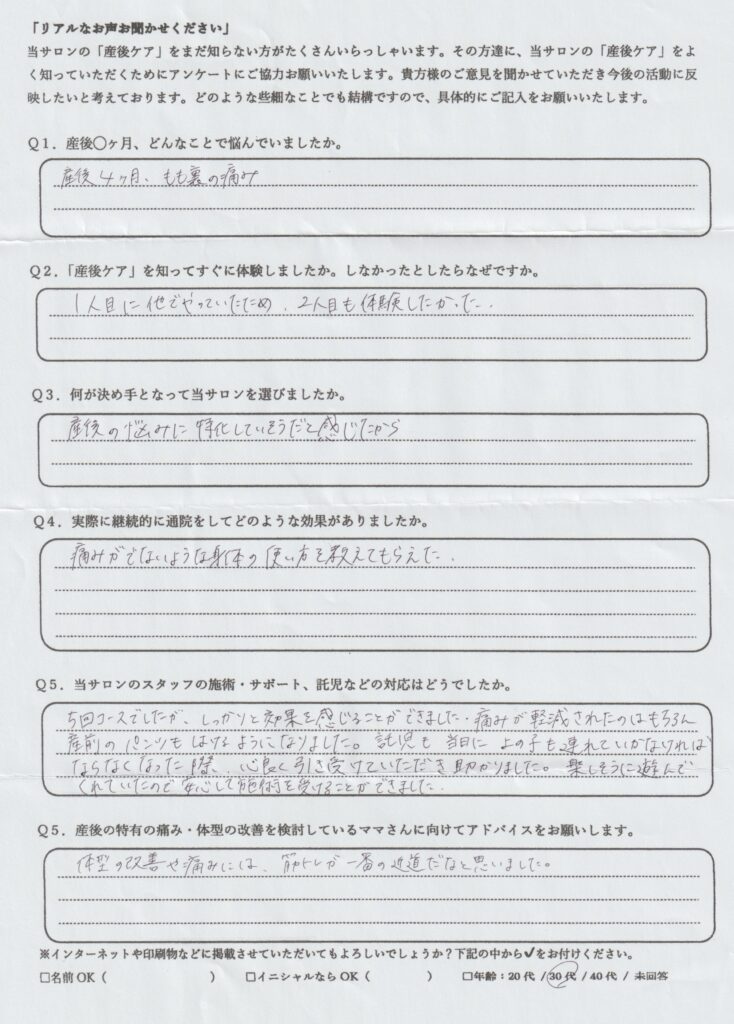 「リアルなお声お聞かせください」
当サロンの「産後ケア」をまだ知らない方がたくさんいらっしゃいます。その方達に、当サロンの「産後ケア」をよ
く知っていただくためにアンケートにご協力お願いいたします。貴方様のご意見を聞かせていただき今後の活動に反
映したいと考えております。どのような些細なことでも結構ですので、具体的にご記入をお願いいたします。
Q1．産後〇ヶ月、どんなことで悩んでいましたか。
産後4ヶ月、もも裏の痛み
Q2．「産後ケア」を知ってすぐに体験しましたか。しなかったとしたらなぜですか。
1人目に他でやっていたため、2人目も体験したかった.
Q3．何が決め手となって当サロンを選びましたか。
産後の悩みに特化していそうだと感じたから
Q4．実際に継続的に通院をしてどのような効果がありましたか。
痛みがでないような身体の使い方を教えてもらえた.
Q5．当サロンのスタッフの施術・サポート、託児などの対応はどうでしたか。
5回コースでしたが、しっかりと効果を感じることができました.痛みが軽減されたのはもちろん
産前のパンツもはけるようになりました。託児も当日に上の子も連れていかなければ
ならなくなった際、心良く引き受けていただき助かりました。楽しそうに遊んで
くれていたので安心して施術を受けることができました.
Q5．産後の特有の痛み・体型の改善を検討しているママさんに向けてアドバイスをお願いします。
体型の改善や痛みには、筋トレが一番の近道だなと思いました。
※インターネットや印刷物などに掲載させていただいてもよろしいでしょうか？下記の中から✔をお付けください。
□名前OK（　　　　　　　）　□イニシャルならOK（　　　　）　□年齢：20代 /30代 / 40代 / 未回答